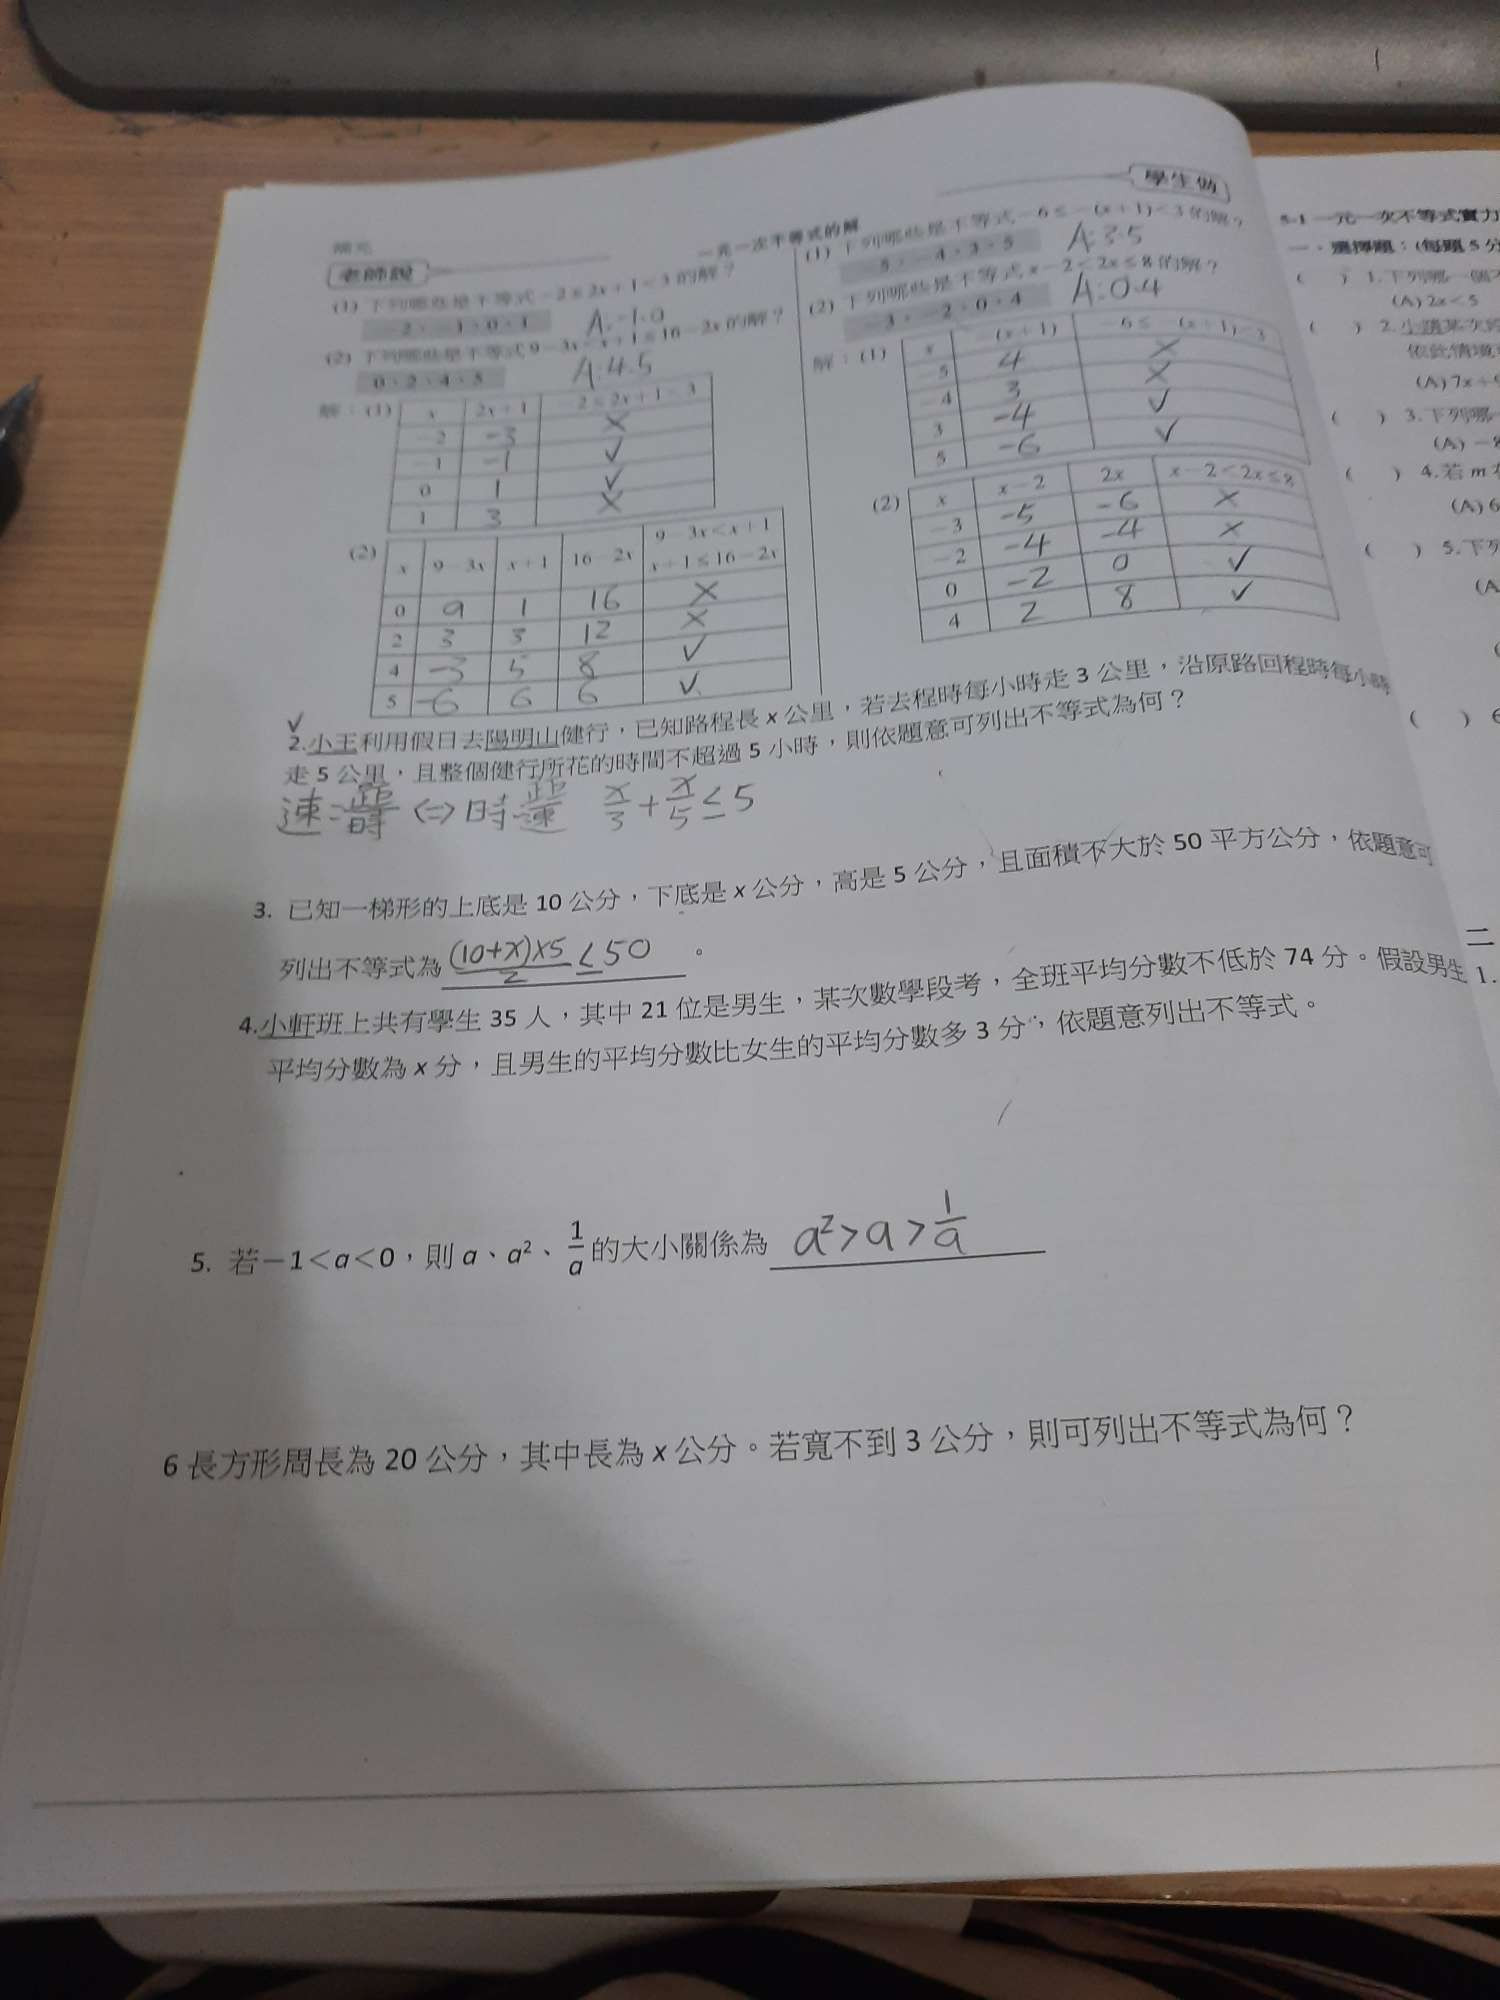 補充
一元一次不等式的解
老師說
(1) 下列哪些是不等式 −2≤2x+1<3 的解？
−2、−1、0、1
A:-1.0
(2) 下列哪些是不等式 9−3x<x+1≤16−2x 的解？
0、2、4、5
A:4.5
解：(1) x 2x+1 −2≤2x+1<3
−2 -3 ×
−1 -1 ✓
0 1 ✓
1 3 ×
(2) x 9−3x x+1 16−2x 9−3x<x+1
x+1≤16−2x
0 9 1 16 ×
2 3 3 12 ×
4 -3 5 8 ✓
5 -6 6 6 ✓
學生做
(1) 下列哪些是不等式 −6≤−(x+1)<3 的解？
−5、−4、3、5
A:3.5
(2) 下列哪些是不等式 x−2<2x≤8 的解？
−3、−2、0、4
A:0.4
解：(1) x −(x+1) −6≤−(x+1)<3
−5 4 ×
−4 3 ×
3 -4 ✓
5 -6 ✓
(2) x x−2 2x x−2<2x≤8
−3 -5 -6 ×
−2 -4 -4 ×
0 -2 0 ✓
4 2 8 ✓
✓
2.小王利用假日去陽明山健行，已知路程長 x 公里，若去程時每小時走 3 公里，沿原路回程時每小時
走 5 公里，且整個健行所花的時間不超過 5 小時，則依題意可列出不等式為何？
速=距/時 ⇔ 時=距/速 x/3+x/5≤5
3. 已知一梯形的上底是 10 公分，下底是 x 公分，高是 5 公分，且面積不大於 50 平方公分，依題意可
列出不等式為 (10+x)×5/2 ≤50 。
4.小軒班上共有學生 35 人，其中 21 位是男生，某次數學段考，全班平均分數不低於 74 分。假設男生
平均分數為 x 分，且男生的平均分數比女生的平均分數多 3 分，依題意列出不等式。
5. 若−1＜a＜0，則 a、a²、1/a 的大小關係為 a²>a>1/a
6 長方形周長為 20 公分，其中長為 x 公分。若寬不到 3 公分，則可列出不等式為何？
5-1 一元一次不等式實力
一、選擇題：(每題 5 分
( ) 1.下列哪一個不
(A) 2x<5
( ) 2.
依此情境
(A) 7x+
( ) 3.下列哪
(A) −8
( ) 4.若 m
(A) 6
( ) 5.下列
(A
( ) 6
二
1.